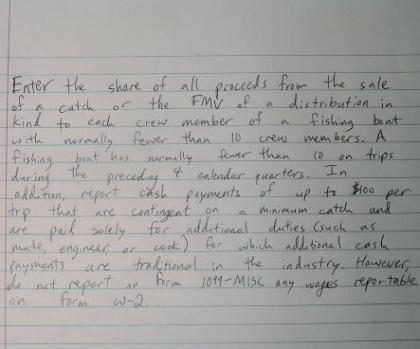 Enter the share of all proceeds from the sale
of a catch or the FMV of a distribution in
kind to each crew member of a fishing boat
with normally fewer than 10 crew members. A
fishing boat has normally fewer than 10 on trips
during the preceding 4 calendar quarters. In
addition, report cash payments of up to $100 per
trip that are contingent on a minimum catch and
are paid solely for additional duties (such as
mate, engineer, or cook) for which additional cash
payments are traditional in the industry. However,
do not report on Form 1099-MISC any wages reportable
on form W-2.